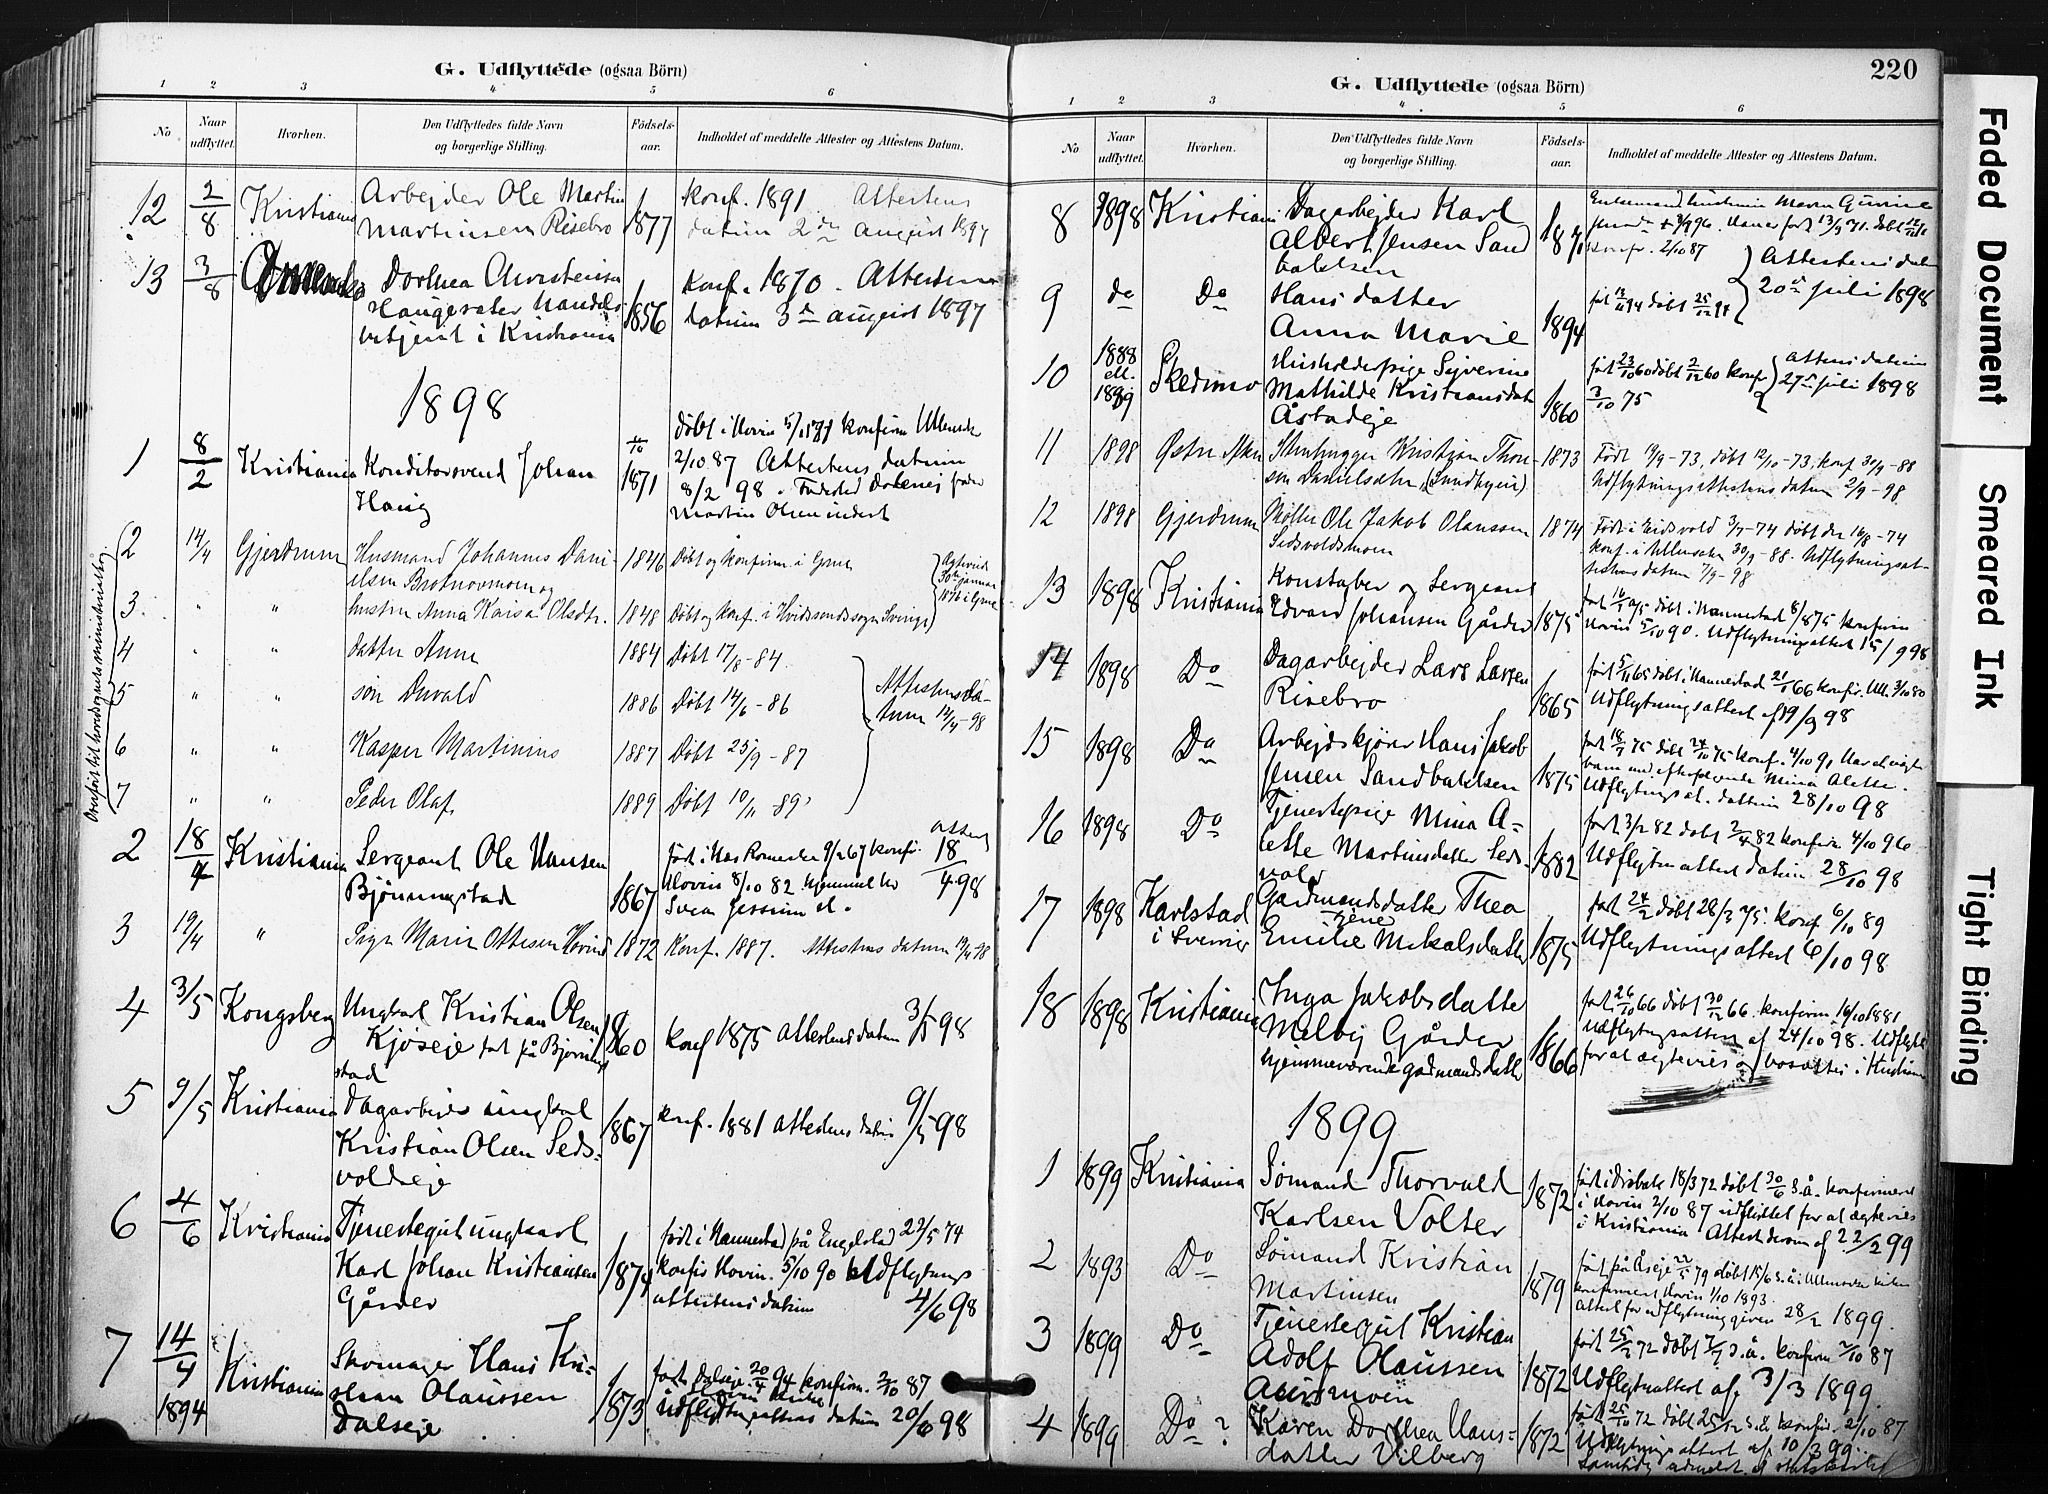 G. Udflyttede (ogsaa Börn)
1 2 3 4 5 6
No
Naar udflyttet.
Hvorhen.
Den Udflyttedes fulde Navn
og borgerlige Stilling.
Födsels-
aar.
Indholdet af meddelte Attester og Attestens Datum.
12 2/8 Kristiania Arbejder Ole Martin
Martinsen Risebro 1877
konf. 1891 Attestens
datum 2den august 1897
13 3/8
Dorthea Christensen
Haugesæter Handels
betjent i Kristiania 1856
Konf. 1870. Attestens
datum 3die august 1897
1898
1 8/2 Kristiania Konditorsvend Johan
Haug 1871
døbt i Hovin konfirm Ullensaker
2/10 87 Attestens datum
8/2 98. Fødested Dalseie, fader
Martin Olsen indert
2 14/4 Gjerdrum Husmand Johannes Dani-
elsen Brotnovmoen og 1846 Døbt og konfirm i Grue
3. " " hustru Anna Kaisa Olsdtr. 1848 Døbt og konf. i Hvidsandssogn Sverige
4 " " datter Anna 1884 Døbt 17/8 - 84.
5 " " søn Duvald 1886 Døbt 14/6 - 86
Attestens da-
tum 14/4 - 98
6 " " Kasper Martinius 1887 Døbt 25/9 - 87
7 " " Peder Olaf 1889 Døbt 10/11 89
2 18/4 Kristiania Sergeant Ole Hansen
Bjønnungstad 1867
født i Næs Romerike 9/2 67 konfir.
Hovin 8/10 82 hjemmel hos
Svein Jessum
attest 18/4 98
3 19/4 " Pige Marie Ottesen Hovind 1872 Konf. 1887. Attestens datum 19/4 98
4 3/5 Kongsberg Ungkarl Kristian Olsen
Kjøseje født på Bjønning
stad 1860 konf 1875 attestens datum 3/5 98
5 9/5 Kristiania Dagarbeider ungkarl
Kristian Olsen Seds-
voldseje 1867 konf. 1881 attestens datum 9/5 98
6 4/6 Kristiania Tjenestegut ungkarl
Karl Johan Kristiansen
Gårder 1874
født i Nannestad på Engelstad 23/5 74
konfir Hovin. 5/10 90 Udflytnings
attestens datum 4/6 98
7 14/4
1894 Kristiania Skomager Hans Kri-
stian Olaussen
Dalseje 1873
født Dalseje 20/4 94 konfirm. 2/10 87
Hovin kirke
Udflytningsattestens datum 20/6 98
220
G. Udflyttede (ogsaa Börn)
1 2 3 4 5 6
No
Naar udflyttet.
Hvorhen.
Den Udflyttedes fulde Navn
og borgerlige Stilling.
Födsels-
aar.
Indholdet af meddelte Attester og Attestens Datum.
8 1898 Kristiania Dagarbejder Karl
Albert Jensen Sand
bakken 1871
Enkemand hustruen Maren Gurine
født 13/9 71. døbt
konfir. 2/10 87
Attestens datum
20de juli 1898
9 do Do Hans datter
Anna Marie 1894
10 1888
ell.
1889 Skedsmo Husholderpige Syverine
Mathilde Kristiansdatter
Åstadeje 1860
født 23/10 60 døbt 2/12 60 konfr
3/10 75
Attens datum
27de juli 1898
11 1898 Østre Aker Stenhugger Kristian Thor-
sen Danielsæter, (Sandbyeie) 1873
Født 19/9 - 73, døbt 12/10 - 73, konf 30/9 - 88
Udflytningsattestens datum 2/9 - 98
12 1898 Gjerdrum Møller Ole Jakob Olaussen
Sedsvoldsmoen 1874
Født i Eidsvold 3/7 - 74 døbt der 16/8 - 74
konf. i Ullensaker 30/9 - 88. Udflytningsat-
testens datum 7/9 - 98
13 1898 Kristiania Konstabel og Sergeant
Edvard Johansen Gårder 1875
døbt i Nannestad 8/8 75 konfirm
Hovin 5/10 90. Udflytningsattest 15/9 98
14 1898 Do Dagarbejder Lars Larsen
Risebro 1865
født 5/11 65 døbt i Nannestad 21/1 66 konfir. Ull. 3/10 80
Udflytningsattest af 19/9 98
15 1898 Do Arbejdskjører Hans Jakob
Jensen Sandbakken 1875
født 18/9 75 døbt 24/10 75 konf. 4/10 91 Har et uægte
barn med efterfølgende Mina Alette.
Udflytningsat. datum 28/10 98
16 1898 Do Tjenestepige Mina A-
lette Martinsdatter Seds-
vold 1882
født 3/2 82 døbt 2/4 82 konfirm 4/10 96
Udflytn attest datum 28/10 98
17 1898 Karlstad
i Sverrige Gårdmandsdatter Thea
tjener
Emilie Mikalsdatter 1875
født 24/2 døbt 28/3 75. konf 6/10 89
Udflytningsattest 6/10 98
18 1898 Kristiania Inga Jakobsdatter
Melby Gårder
hjemmeværende gårdmandsdatter 1866
født 26/10 66 døbt 30/12 66. konfirm. 16/10 1881
Udflytngsattest af 24/10 98. Udflytte
for at ægtevies og bosættes i Kristiania
1899
1 1899 Kristiania Sømand Thorvald
Karlsen Volter 1872
født i Drøbak 18/3 72 døbt 30/6 s.å. konfirmeret
i Hovin 2/10 87 udflyttet for at ægtevies
i Kristiania. Attest derom af 22/2 99
2 1893 Do Sømand Kristian
Martinsen 1879
født på Åseje 22/5 79 døbt 15/6 s.å. i Ullensaker kirke
konfirmeret Hovin 1/10 1893.
Attest for udflytning given 28/2 1899.
3 1899 Do Tjenestegut Kristian
Adolf Olaussen
Aurmoen 1872
født 25/2 72 døbt 7/7 s.å. konfirm 2/10 87
Udflytnattest af 3/3 1899.
4 1899 Do ? Karen Dorthea Hans-
datter Vilberg 1872
født 25/10 72 døbt 25/12 s.å. konfir. 2/10 87
Udflytningsattest af 10/3 99.
Faded Document
Smeared Ink
Tight Binding